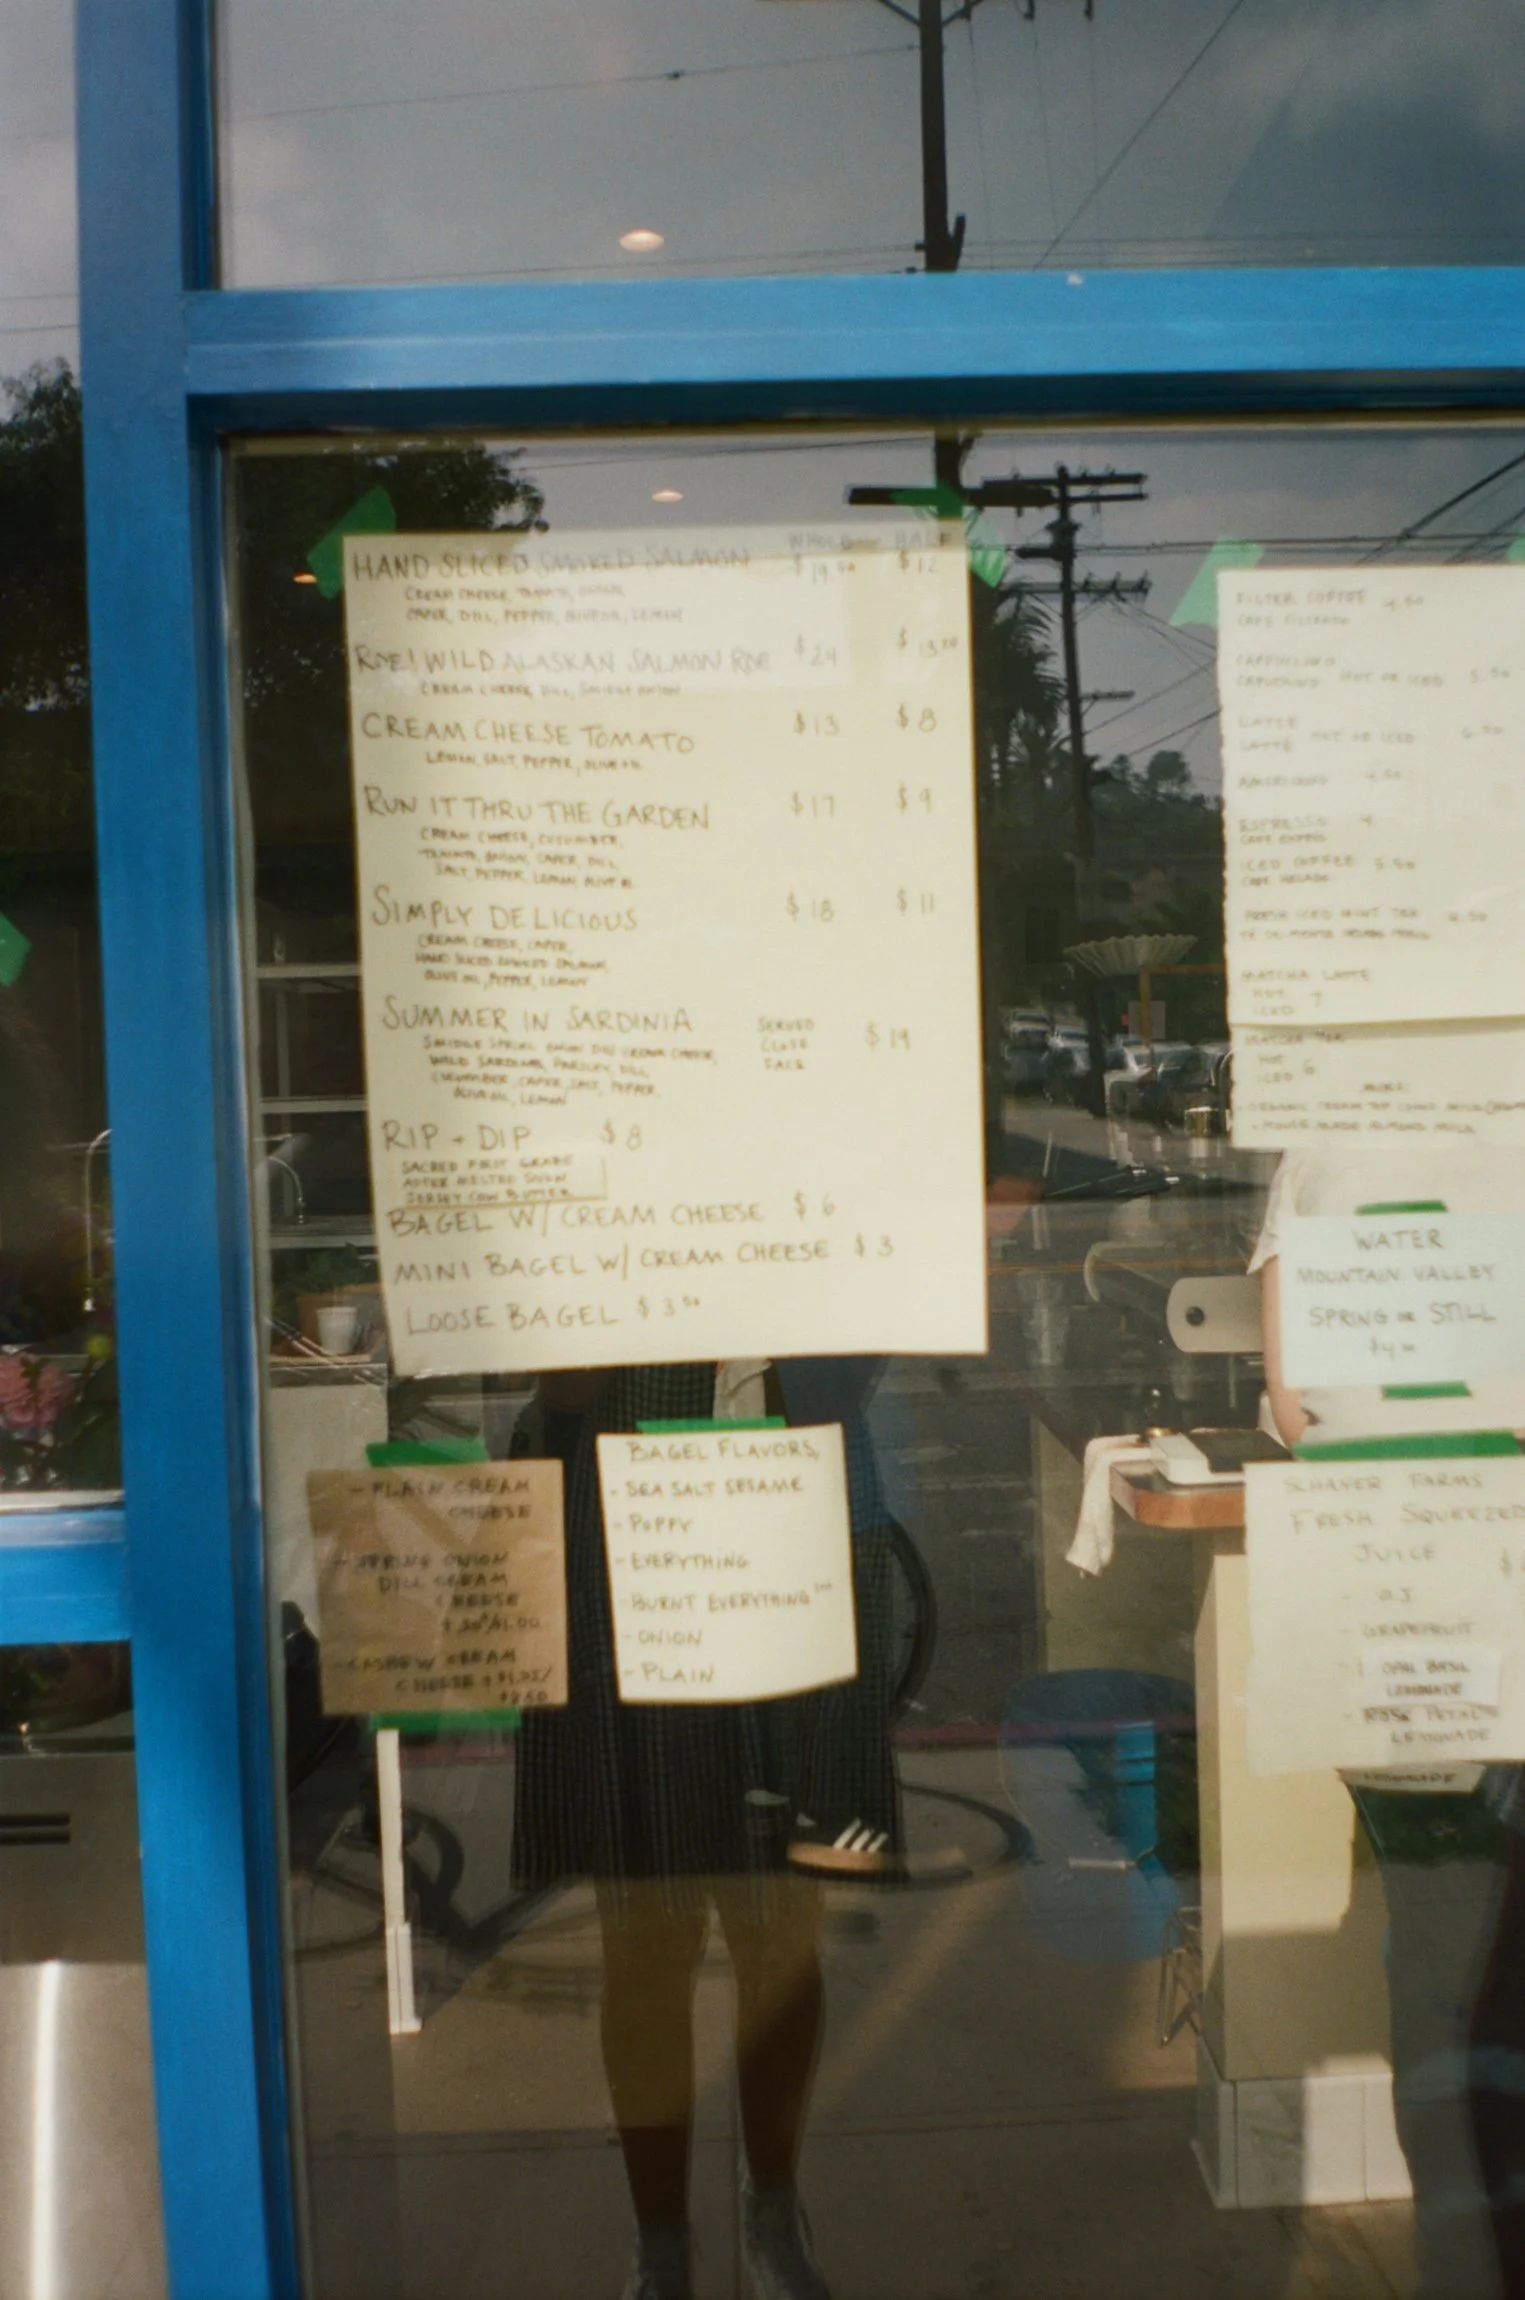 WHOLE HALF
HAND SLICED SMOKED SALMON $19.50 $12
CREAM CHEESE, TOMATO, ONION,
CAPER, DILL, PEPPER, LEMON
ROE! WILD ALASKAN SALMON ROE $24 $13.50
CREAM CHEESE, DILL, ONION
CREAM CHEESE TOMATO $13 $8
LEMON, SALT, PEPPER, OLIVE OIL
RUN IT THRU THE GARDEN $17 $9
CREAM CHEESE, CUCUMBER,
TOMATO, ONION, CAPER, DILL
SALT, PEPPER, LEMON, OLIVE OIL
SIMPLY DELICIOUS $18 $11
CREAM CHEESE, CAPER,
HAND SLICED SMOKED SALMON,
OLIVE OIL, PEPPER, LEMON
SUMMER IN SARDINIA SERVED CLOSE FACE $19
SPRING ONION DILL CREAM CHEESE,
WILD SARDINES, PARSLEY, DILL,
CUCUMBER, CAPER, SALT, PEPPER,
OLIVE OIL, LEMON
RIP + DIP $8
SACRED FIRST GRADE
AFTER MELTED SNOW
JERSEY COW BUTTER
BAGEL W/ CREAM CHEESE $6
MINI BAGEL W/ CREAM CHEESE $3
LOOSE BAGEL $3.50
- PLAIN CREAM
CHEESE
- SPRING ONION
DILL CREAM
CHEESE
+.50/$1.00
- CASHEW CREAM
CHEESE +$1.25/
$2.50
BAGEL FLAVORS,
- SEA SALT SESAME
- POPPY
- EVERYTHING
- BURNT EVERYTHING
- ONION
- PLAIN
FILTER COFFEE 4.50
CAFE FILTRADO
CAPPUCCINO
CAPUCHINO HOT OR ICED 5.50
LATTE
LATTÉ HOT OR ICED 6.50
AMERICANO 4.50
ESPRESSO 4
CAFE EXPRES
ICED COFFEE 5.50
CAFE HELADO
FRESH ICED MINT TEA 4.50
TÉ DE MENTA
MATCHA LATTE
HOT
ICED 7
MATCHA TEA
HOT
ICED 6
MILKS:
- ORGANIC CREAM TOP COWS MILK
- HOUSE MADE ALMOND MILK
WATER
MOUNTAIN VALLEY
SPRING OR STILL
SCHANER FARMS
FRESH SQUEEZED
JUICE
- OJ
- GRAPEFRUIT
- OPAL BASIL
LEMONADE
- ROSE PETAL
LEMONADE
LEMONADE